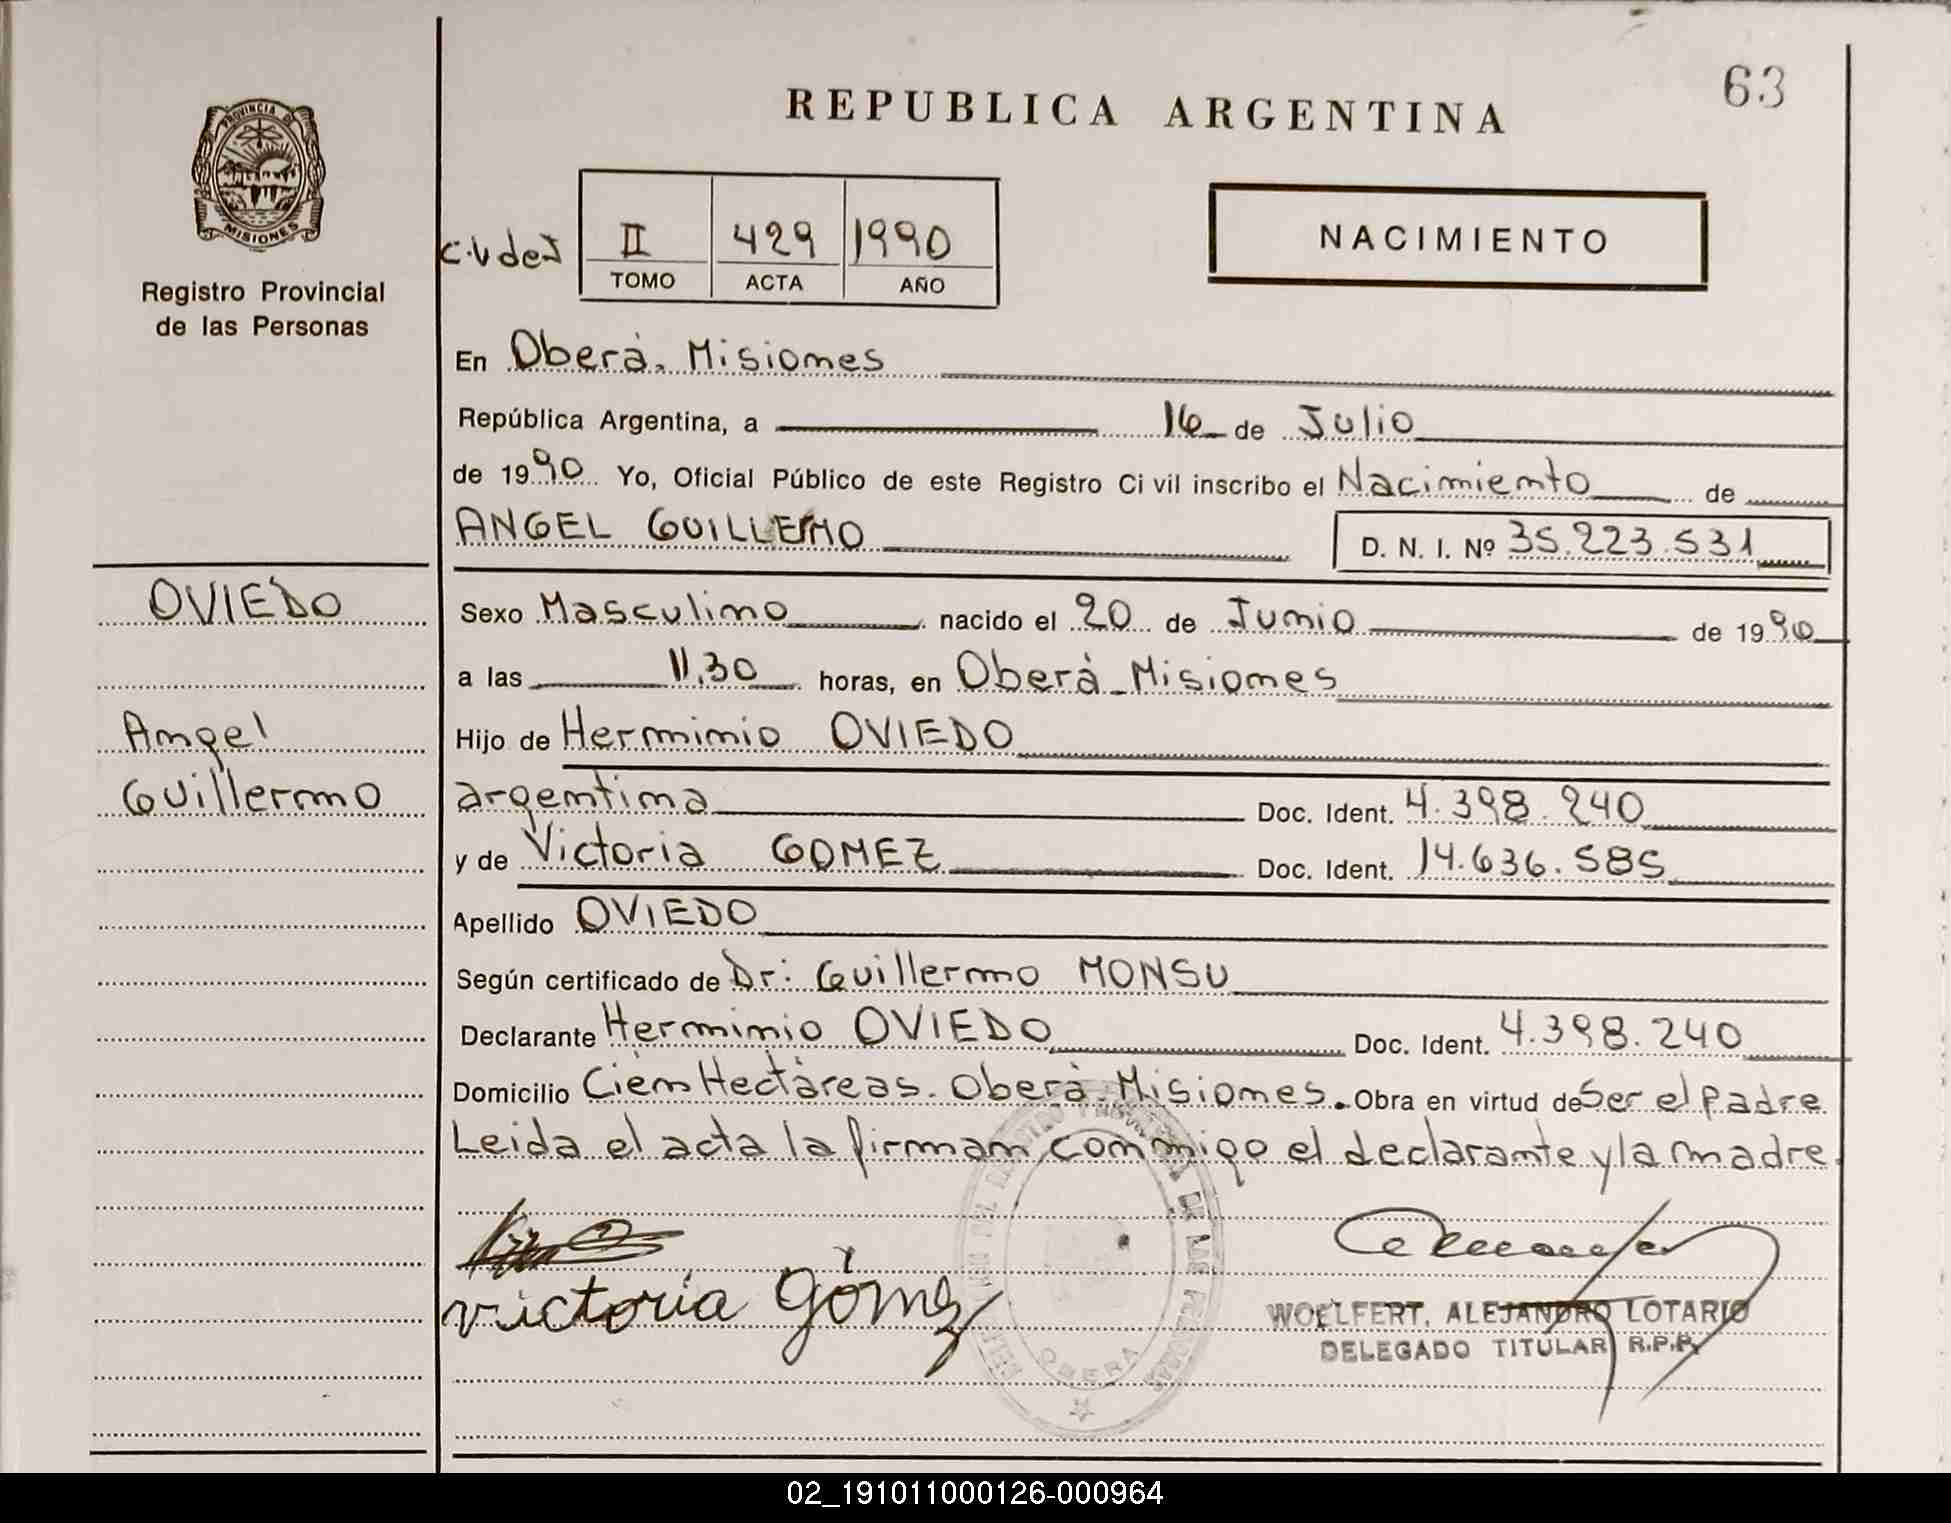 63
REPUBLICA ARGENTINA
PROVINCIA DE
MISIONES
Registro Provincial
de las Personas
II 429 1990
TOMO ACTA AÑO
NACIMIENTO
En Oberá. Misiones
República Argentina, a 16 de Julio
de 1990 Yo, Oficial Público de este Registro Civil inscribo el Nacimiento de
ANGEL GUILLERMO D. N. I. Nº 35.223.531
OVIEDO
Sexo Masculino nacido el 20 de Junio de 1990
a las 11,30 horas, en Oberá - Misiones
Angel
Guillermo
Hijo de Herminio OVIEDO
argentina Doc. Ident. 4.398.240
y de Victoria GOMEZ Doc. Ident. 14.636.585
Apellido OVIEDO
Según certificado de Dr: Guillermo MONSU
Declarante Herminio OVIEDO Doc. Ident. 4.398.240
Domicilio Cien Hectáreas. Oberá. Misiones. Obra en virtud de Ser el padre
Leida el acta la firman conmigo el declarante y la madre.
victoria Gómez
OBERA
WOELFERT, ALEJANDRO LOTARIO
DELEGADO TITULAR R.P.P.
02_191011000126-000964